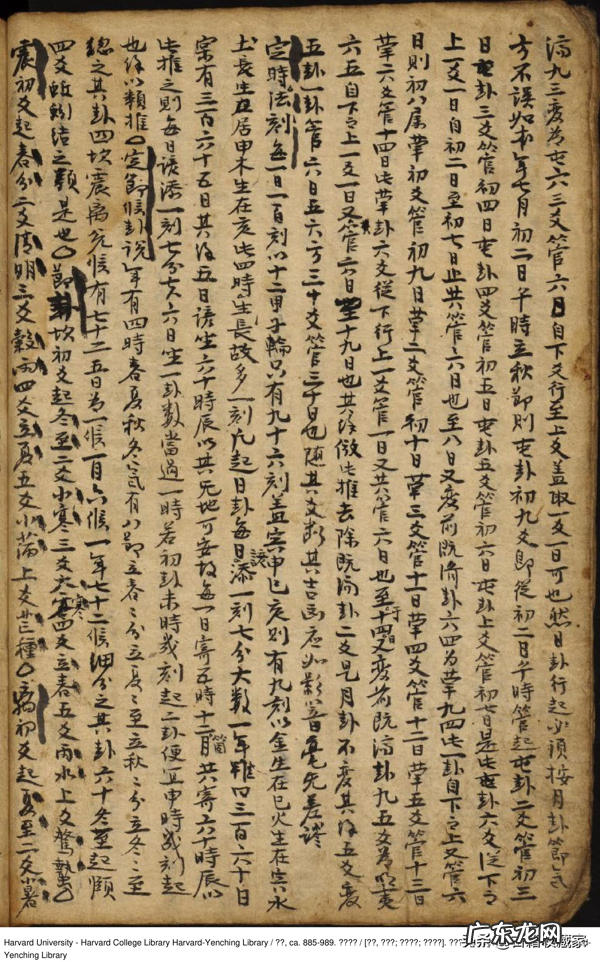 濟九三變為屯六三爻管六日自下爻行至上爻蓋取一爻一日可也然日卦行起必須按月卦節气
方不誤如本年七月初二日午時立秋節則屯卦初九爻即從初二日午時管起屯卦二爻管初三
日屯卦三爻管初四日屯卦四爻管初五日屯卦五爻管初六日屯卦上爻管初七日是屯卦六爻從下而
上一爻一日自初二日至初七日止共管六日也至八日又變前既濟卦六四為革九四此一卦自下而上又管六
日則初八屬革初爻管初九日革二爻管初十日革三爻管十一日革四爻管十二日革五爻管十三日
革六爻管十四日此革卦六爻從下行上一爻管一日又共管六日也至十四日又變前既濟卦九五為明夷
六五自下而上一爻一日又管六日至十九日也其餘倣此推去除既濟卦二爻是月卦不變其餘五爻變
五卦一卦管六日五六方三十爻管三十日也隨其爻斷其吉凶應如影響毫无差謬
定時法刻每一日一百刻以十二甲子輪只有九十六刻蓋寅申巳亥則有九刻以金生在巳火生在寅水
土長生在申木生在亥此四時生長故多一刻凡起日卦每日該添一刻七分大數一年雖曰三百六十日
宗有三百六十五日其餘五日該坐六十時辰以其无地可安故每一日寄五時十二月共寄六十時辰以
此推之則每日該添一刻七分大六日坐一卦數當過一時若初卦未時或刻起二卦便宜申時或刻起
也餘以類推 定節候卦說 年有四時春夏秋冬气有八節立春春分立夏夏至立秋秋分立冬冬至
總之其卦四坎震離兌候有七十二五日為一候一月六候一年七十二候細分之其卦六十冬至起頤
四爻蚯蚓結之類是也 節 坎初爻起冬至二爻小寒三爻大寒四爻立春五爻雨水上爻驚蟄
震初爻起春分二爻清明三爻穀雨四爻立夏五爻小滿上爻芒種 離初爻起夏至二爻小暑
Harvard University - Harvard College Library Harvard-Yenching Library / ??, ca. 885-989. ???? / [??, ???; ????; ????]. ???
Yenching Library
广东龙网